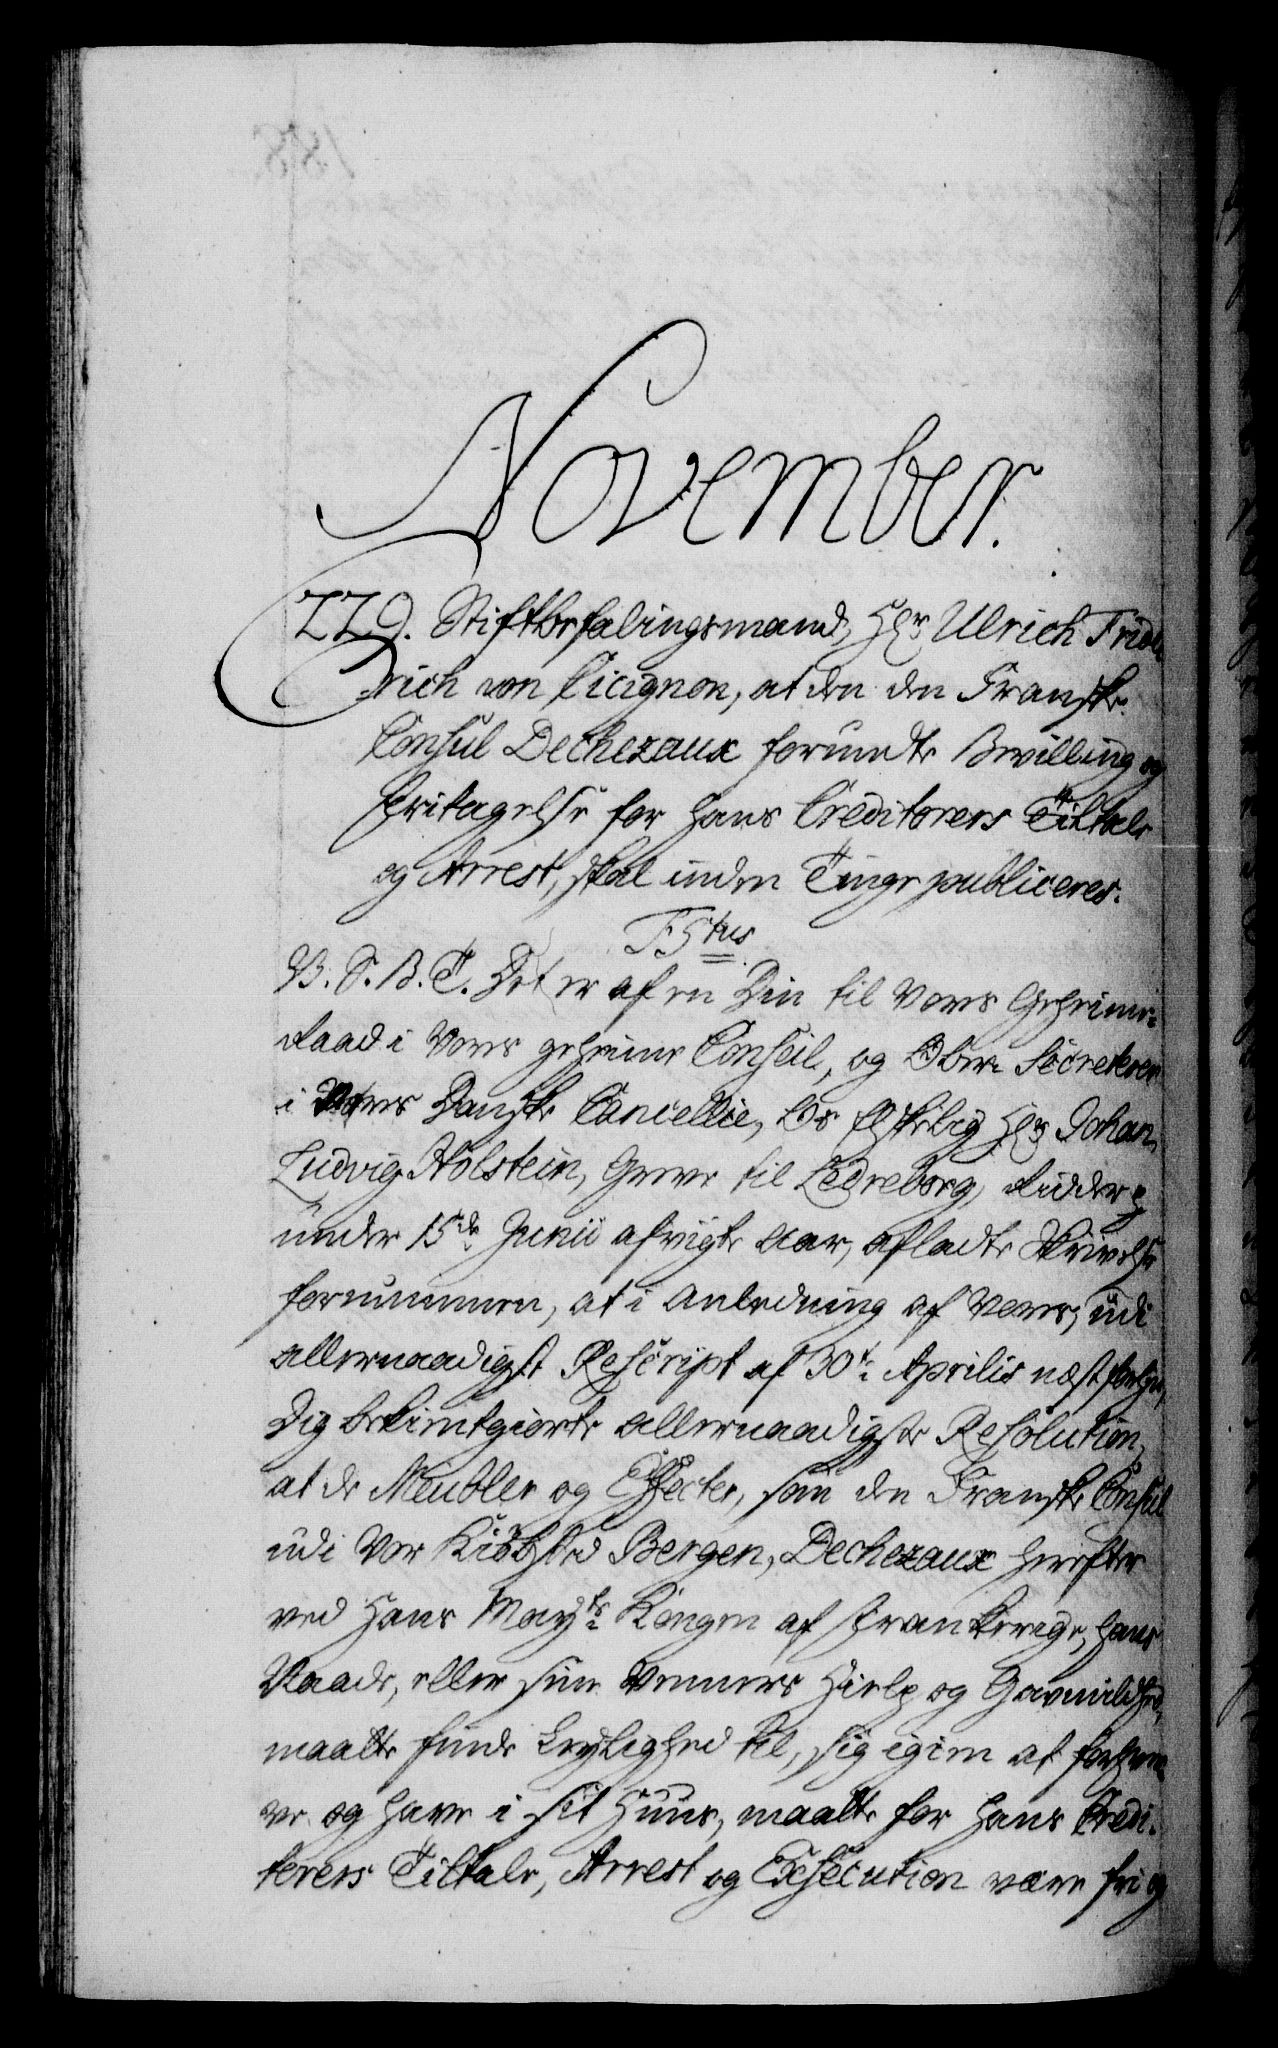 November.
229. Stiftbefalingsmand, Hr: Ulrich Fride
drich von Cicignon, at den den Franske
Consul Dechezaux forundte Bevilling og
Fritagelse for hans Creditorers Tiltale
og Arrest, skal inden Tinge publiceres.
F5tus
V. S. B. T. Det er af en Din til Vores Geheime-
Raad i Vores geheime Conseil, og Ober-Secreterer
i Vores Danske Cancellie, Os Elskelig Hr: Johan
Ludvig Holstein, Greve til Ledreborg, Ridder
under 15de Junii afvigte Aar, afladte Skrivelse
fornummen, at i Anledning af Vores, udi
allernaadigst Rescript af 30te Aprilis næstforhen,
Dig bekientgiorte allernaadigste Resolution,
at de Meubler og Effecter, som den Franske Consul
udi Vor Kiøbsted Bergen, Dechezaux herefter
ved Hans Mayts: Kongen af Frankerige, hans
Naade, eller sine Venners Hielp og Gavmildhed,
maatte finde Leylighed til, sig igien at forhver-
ve og have i sit Huus, maatte for hans Credi-
torers Tiltale, Arrest og Execution være fri og